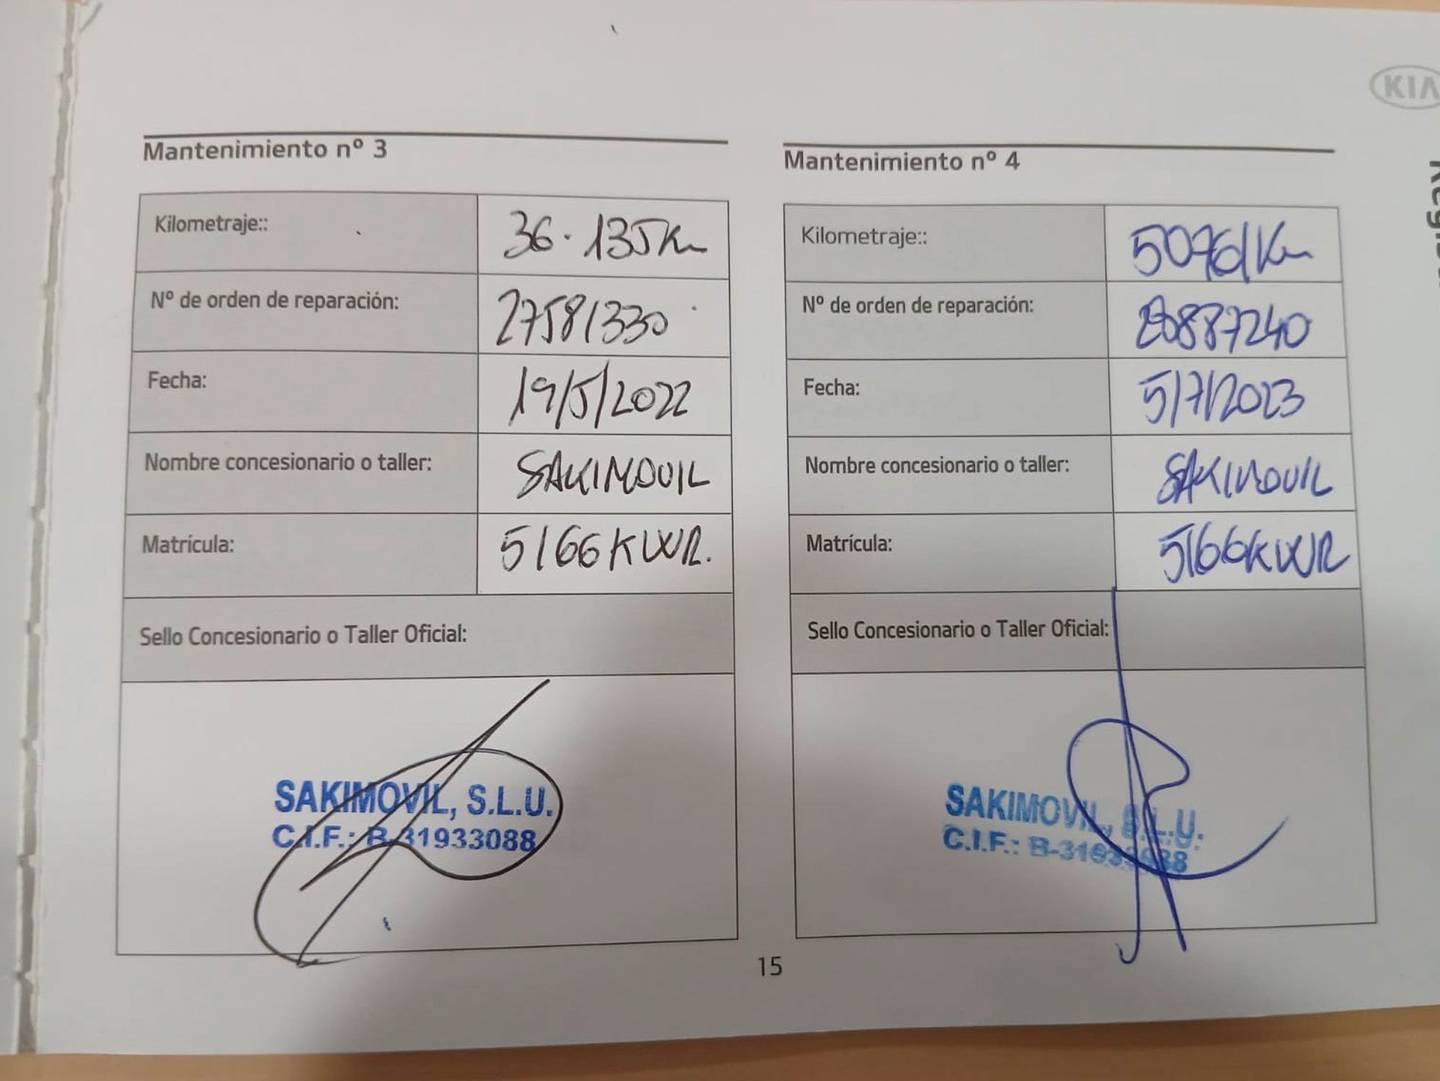 KIA
Mantenimiento nº 3
Kilometraje::
36.135Km
Nº de orden de reparación:
27581330
Fecha:
19/5/2022
Nombre concesionario o taller:
SAKIMOVIL
Matrícula:
5166KWR.
Sello Concesionario o Taller Oficial:
SAKIMOVIL, S.L.U.
C.I.F.: B-31933088
Mantenimiento nº 4
Kilometraje::
50761Km
Nº de orden de reparación:
Fecha:
5/7/2023
Nombre concesionario o taller:
SAKIMOVIL
Matrícula:
5166KWR
Sello Concesionario o Taller Oficial:
SAKIMOVIL, S.L.U.
C.I.F.: B-31933088
15